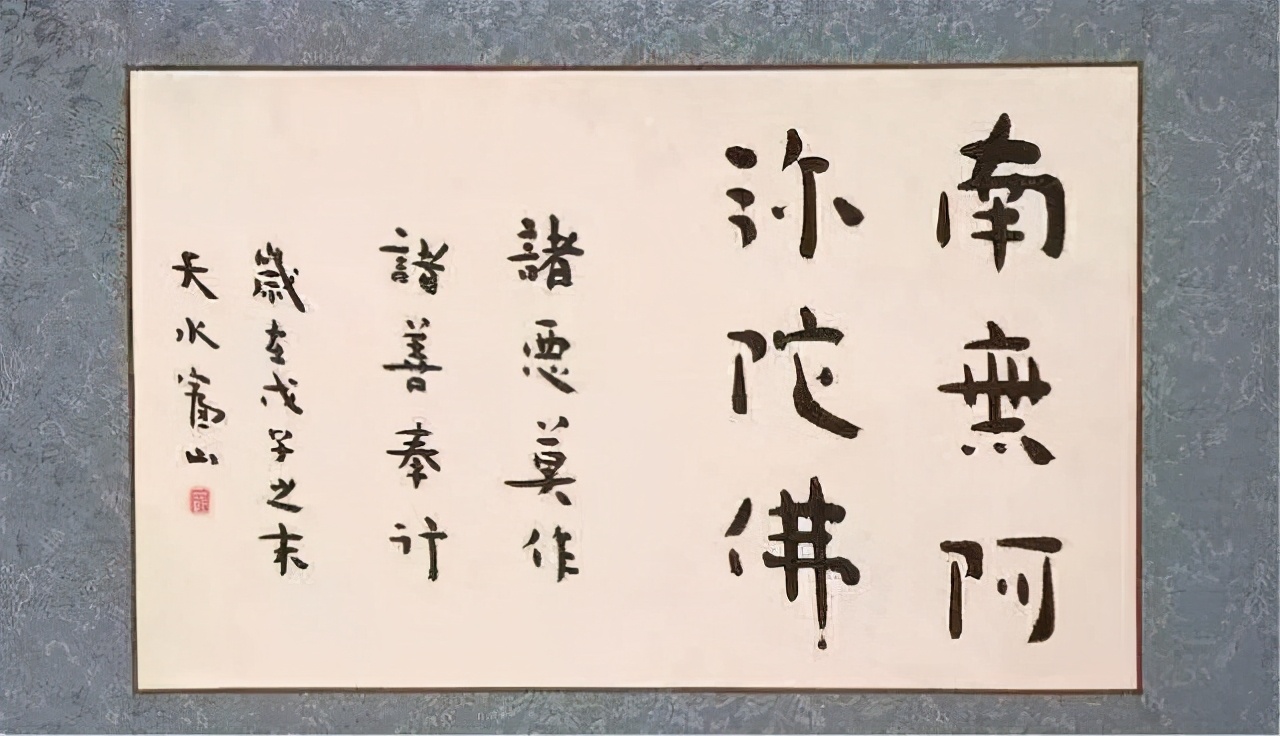 南無阿
弥陀佛
諸悪莫作
諸善奉行
歲在戊子之末
天水山